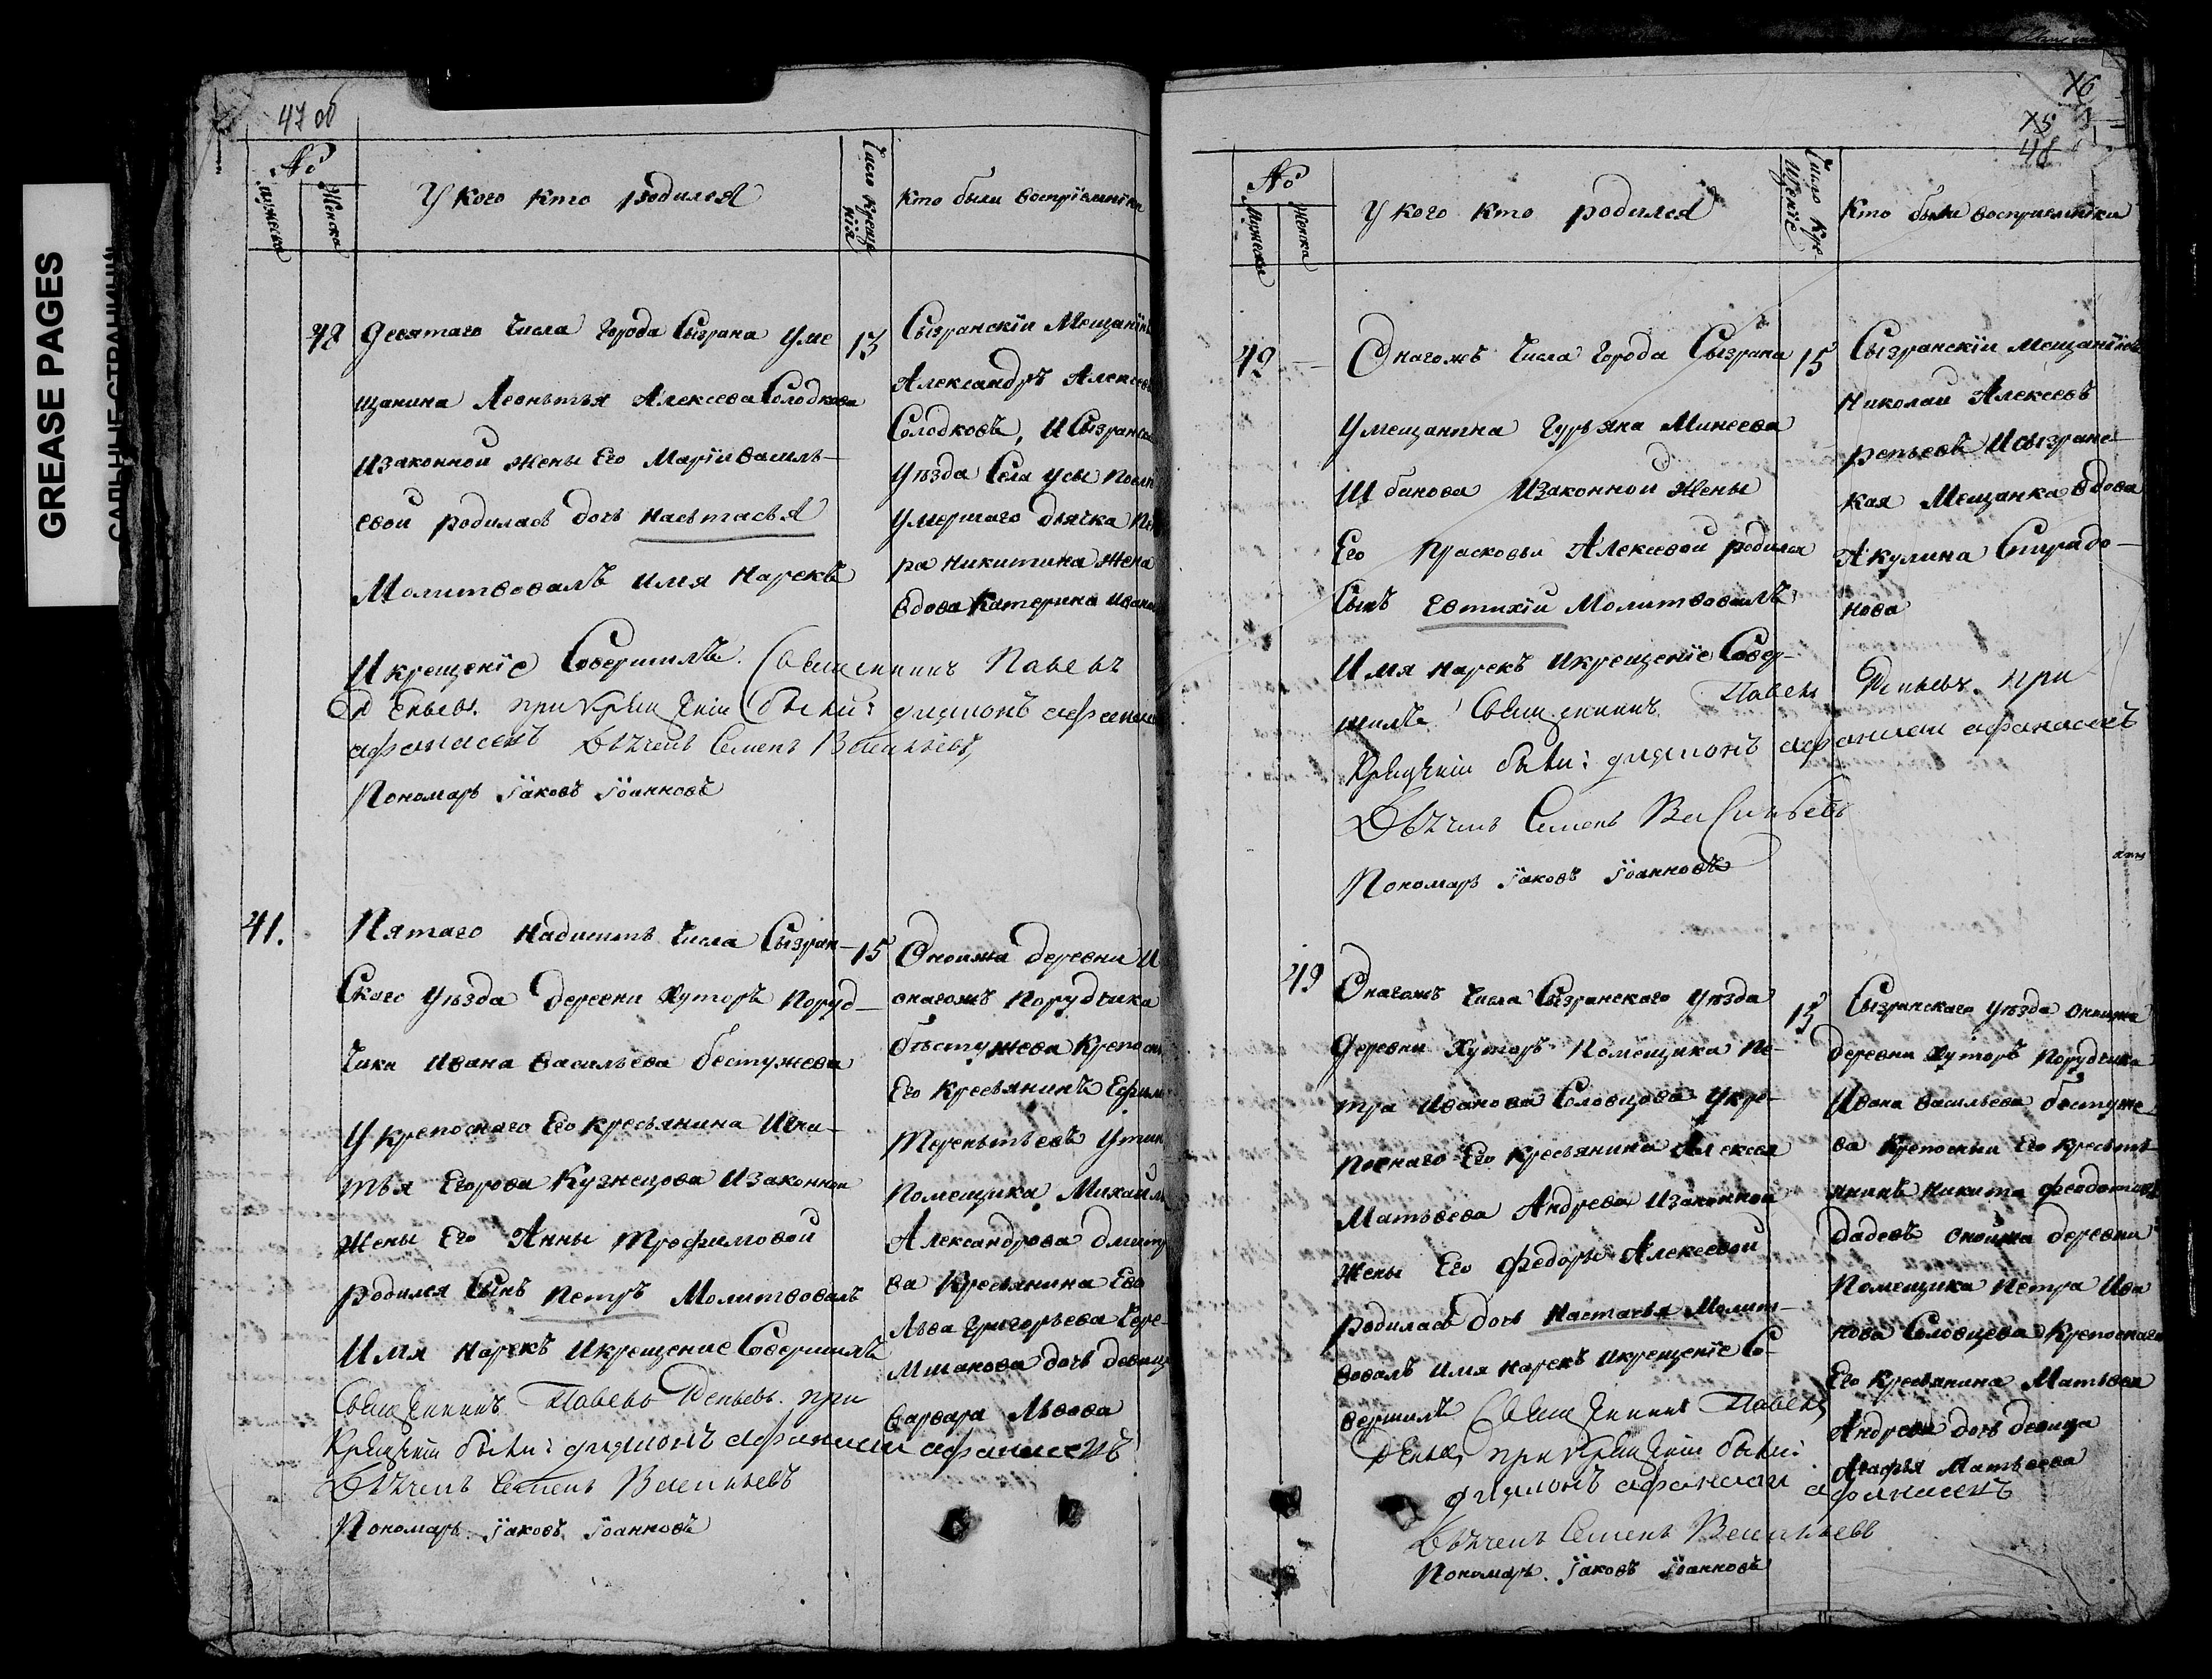 GREASE PAGES
САЛЬНЫЕ СТРАНИЦЫ
47 об
№
Мужеска
Женска
У кого кто родился
Число крещенія
Кто были воспріемники
48
Девятаго числа города Сызрана уме
щанина Леонтья Алексева Солодкова
изаконной жены его Маріи василь-
евой родилась дочь Настасья
Молитвовалъ имя нарекъ
икрещеніе Совершилъ Священникъ Павелъ
Репьевъ. при крещеніи были: диаконъ афанасіи
афанасевъ Дьячекъ Семенъ Васильевъ,
Пономарь Іаковъ Іоанновъ
13
Сызранскіи Мещанинъ
Александръ Алексеев
Солодковъ, и Сызранска
уѣзда Села усы
умершаго дьячка
ра никитина жена
вдова Катерина иванов
41.
Пятаго надесять числа Сызран-
Скаго уѣзда деревни Хуторъ Поруд-
чика ивана васильева бестужева
у крепоснаго его кресьянина игна-
тья Егорова Кузнецова изаконнои
жены Его Анны трофимовой
родился Сынъ петръ Молитвовалъ
имя нарекъ икрещение Совершилъ
Священникъ Павелъ Репьевъ. при
крещеніи были: диаконъ афанасіи афанасевъ
Дьячекъ Семенъ Васильевъ
Пономарь Іаковъ Іоанновъ
15
Оноижа деревни и
онагожъ Порудчика
бѣстужева крепосн
Его кресьянинъ Ефим
терентьевъ
помещика Михаил
Александрова дмитр
ва кресьянина
Лѣва григорьева Чере-
мшанова дочь девица
варвара Львова
Х6
Х5
48
№
Мужеска
женска
у кого кто родился
Число крещеніе
Кто были восприемники
42
Онагожъ числа города Сызрана
умещанина гурьяна Минеева
изаконнои жены
Его прасковьи Алексевои родился
Сынъ Евтихіи Молитвовалъ
имя нарекъ икрещеніе Совер-
шилъ Священникъ Павелъ Репьевъ. при
крещеніи были: диаконъ афанасіи афанасевъ
Дьячекъ Семенъ Васильевъ
Пономарь Іаковъ Іоанновъ
15
Сызранскіи мещанинъ
николаи Алексеевъ
репьевъ исызранс-
кая Мещанка вдова
Акулина Спиридо-
нова
49
Онагожъ числа Сызранскаго уѣзда
деревни Хуторъ помещика пе-
тра иванова Соловцова укре-
поснаго Его кресьянина Алексея
Матвеева Андрева изаконнои
жены Его федоры Алексевои
родилась дочь Настасья Молит-
вовалъ имя нарекъ икрещеніе Со-
вершилъ Священникъ Павелъ
Репьевъ, при крещеніи были:
диаконъ афанасіи афанасевъ
Дьячекъ Семенъ Васильевъ
Пономарь. Іаковъ Іоанновъ
15
Сызранскаго уѣзда оноижа
деревни Хуторъ порудчика
ивана васильева бестуже-
ва крепосныи его кресь-
янинъ никита феодотовъ
дадевъ оноижа деревни
Помещика петра ива
нова Соловцева крепоснаго
Его кресьянина Матвея
Андрева дочь девица
Агафья Матвеева